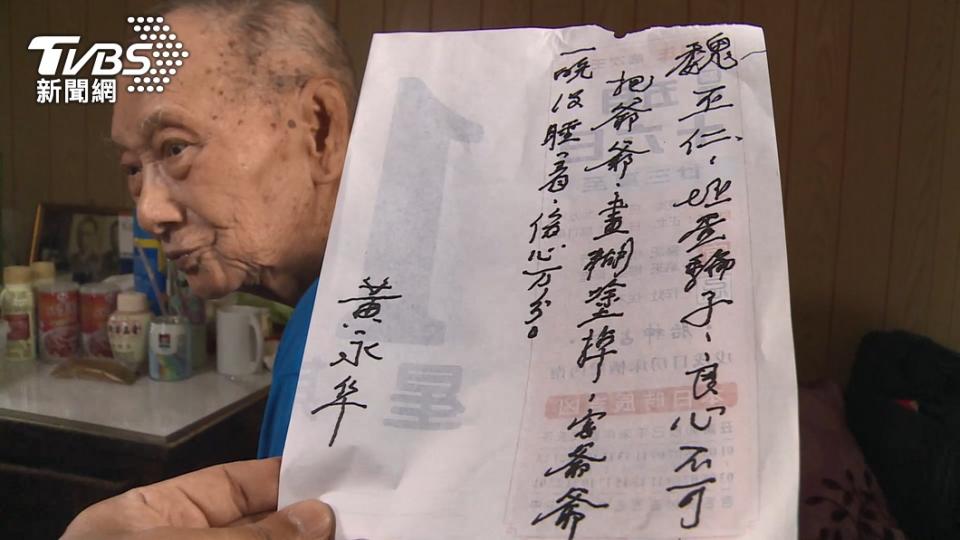 TVBS
新聞網
魏丕仁、坏蛋騙子、良心不可
把爺爺、畫糊塗掉、害爺爺
一晚没睡着、傷心万分。
黃永阜